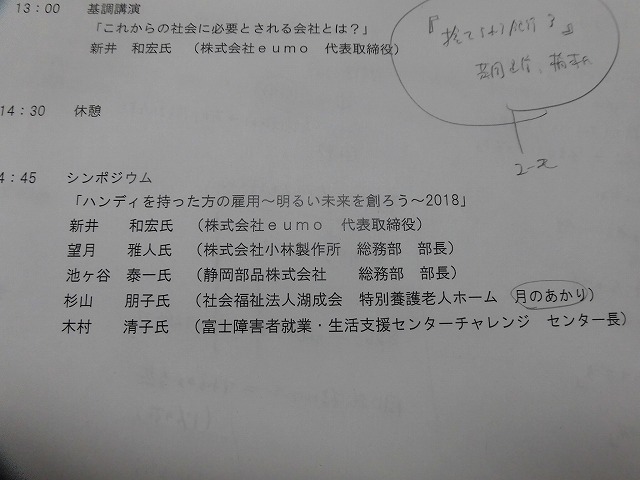 13:00　基調講演
「これからの社会に必要とされる会社とは？」
新井　和宏氏　（株式会社ｅｕｍｏ　代表取締役）
14:30　休憩
4:45　シンポジウム
「ハンディを持った方の雇用～明るい未来を創ろう～2018」
新井　和宏氏　（株式会社ｅｕｍｏ　代表取締役）
望月　雅人氏　（株式会社小林製作所　総務部　部長）
池ヶ谷　泰一氏　（静岡部品株式会社　総務部　部長）
杉山　朋子氏　（社会福祉法人湖成会　特別養護老人ホーム　月のあかり）
木村　清子氏　（富士障害者就業・生活支援センターチャレンジ　センター長）